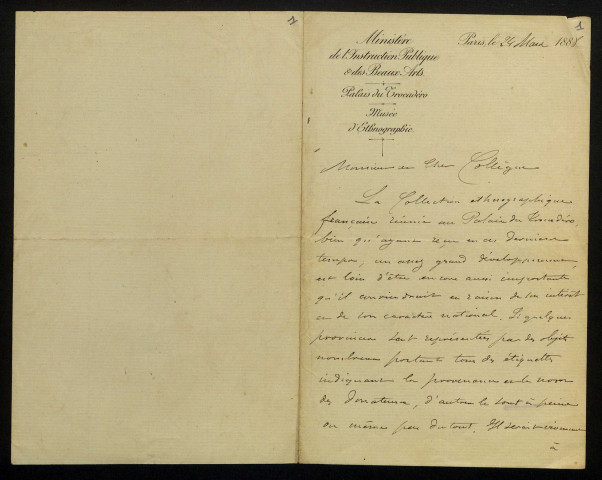 1
1
Ministère
de l'Instruction Publique
& des Beaux-Arts.
Palais du Trocadéro
Musée
d'Ethnographie.
Paris, le 24 Mars 188
Monsieur et Cher Collègue
La Collection ethnographique
française réunie au Palais du Trocadéro,
bien qu'ayant reçu en ces derniers
temps, un assez grand développement,
est loin d'être encore aussi importante
qu'il conviendrait en raison de son intérêt
et de son caractère national. Si quelques
provinces sont représentées par des objets
nombreux portant tous des étiquettes
indiquant la provenance et le nom
des Donateurs, d'autres le sont à peine
ou même pas du tout. Il serait vivement
à